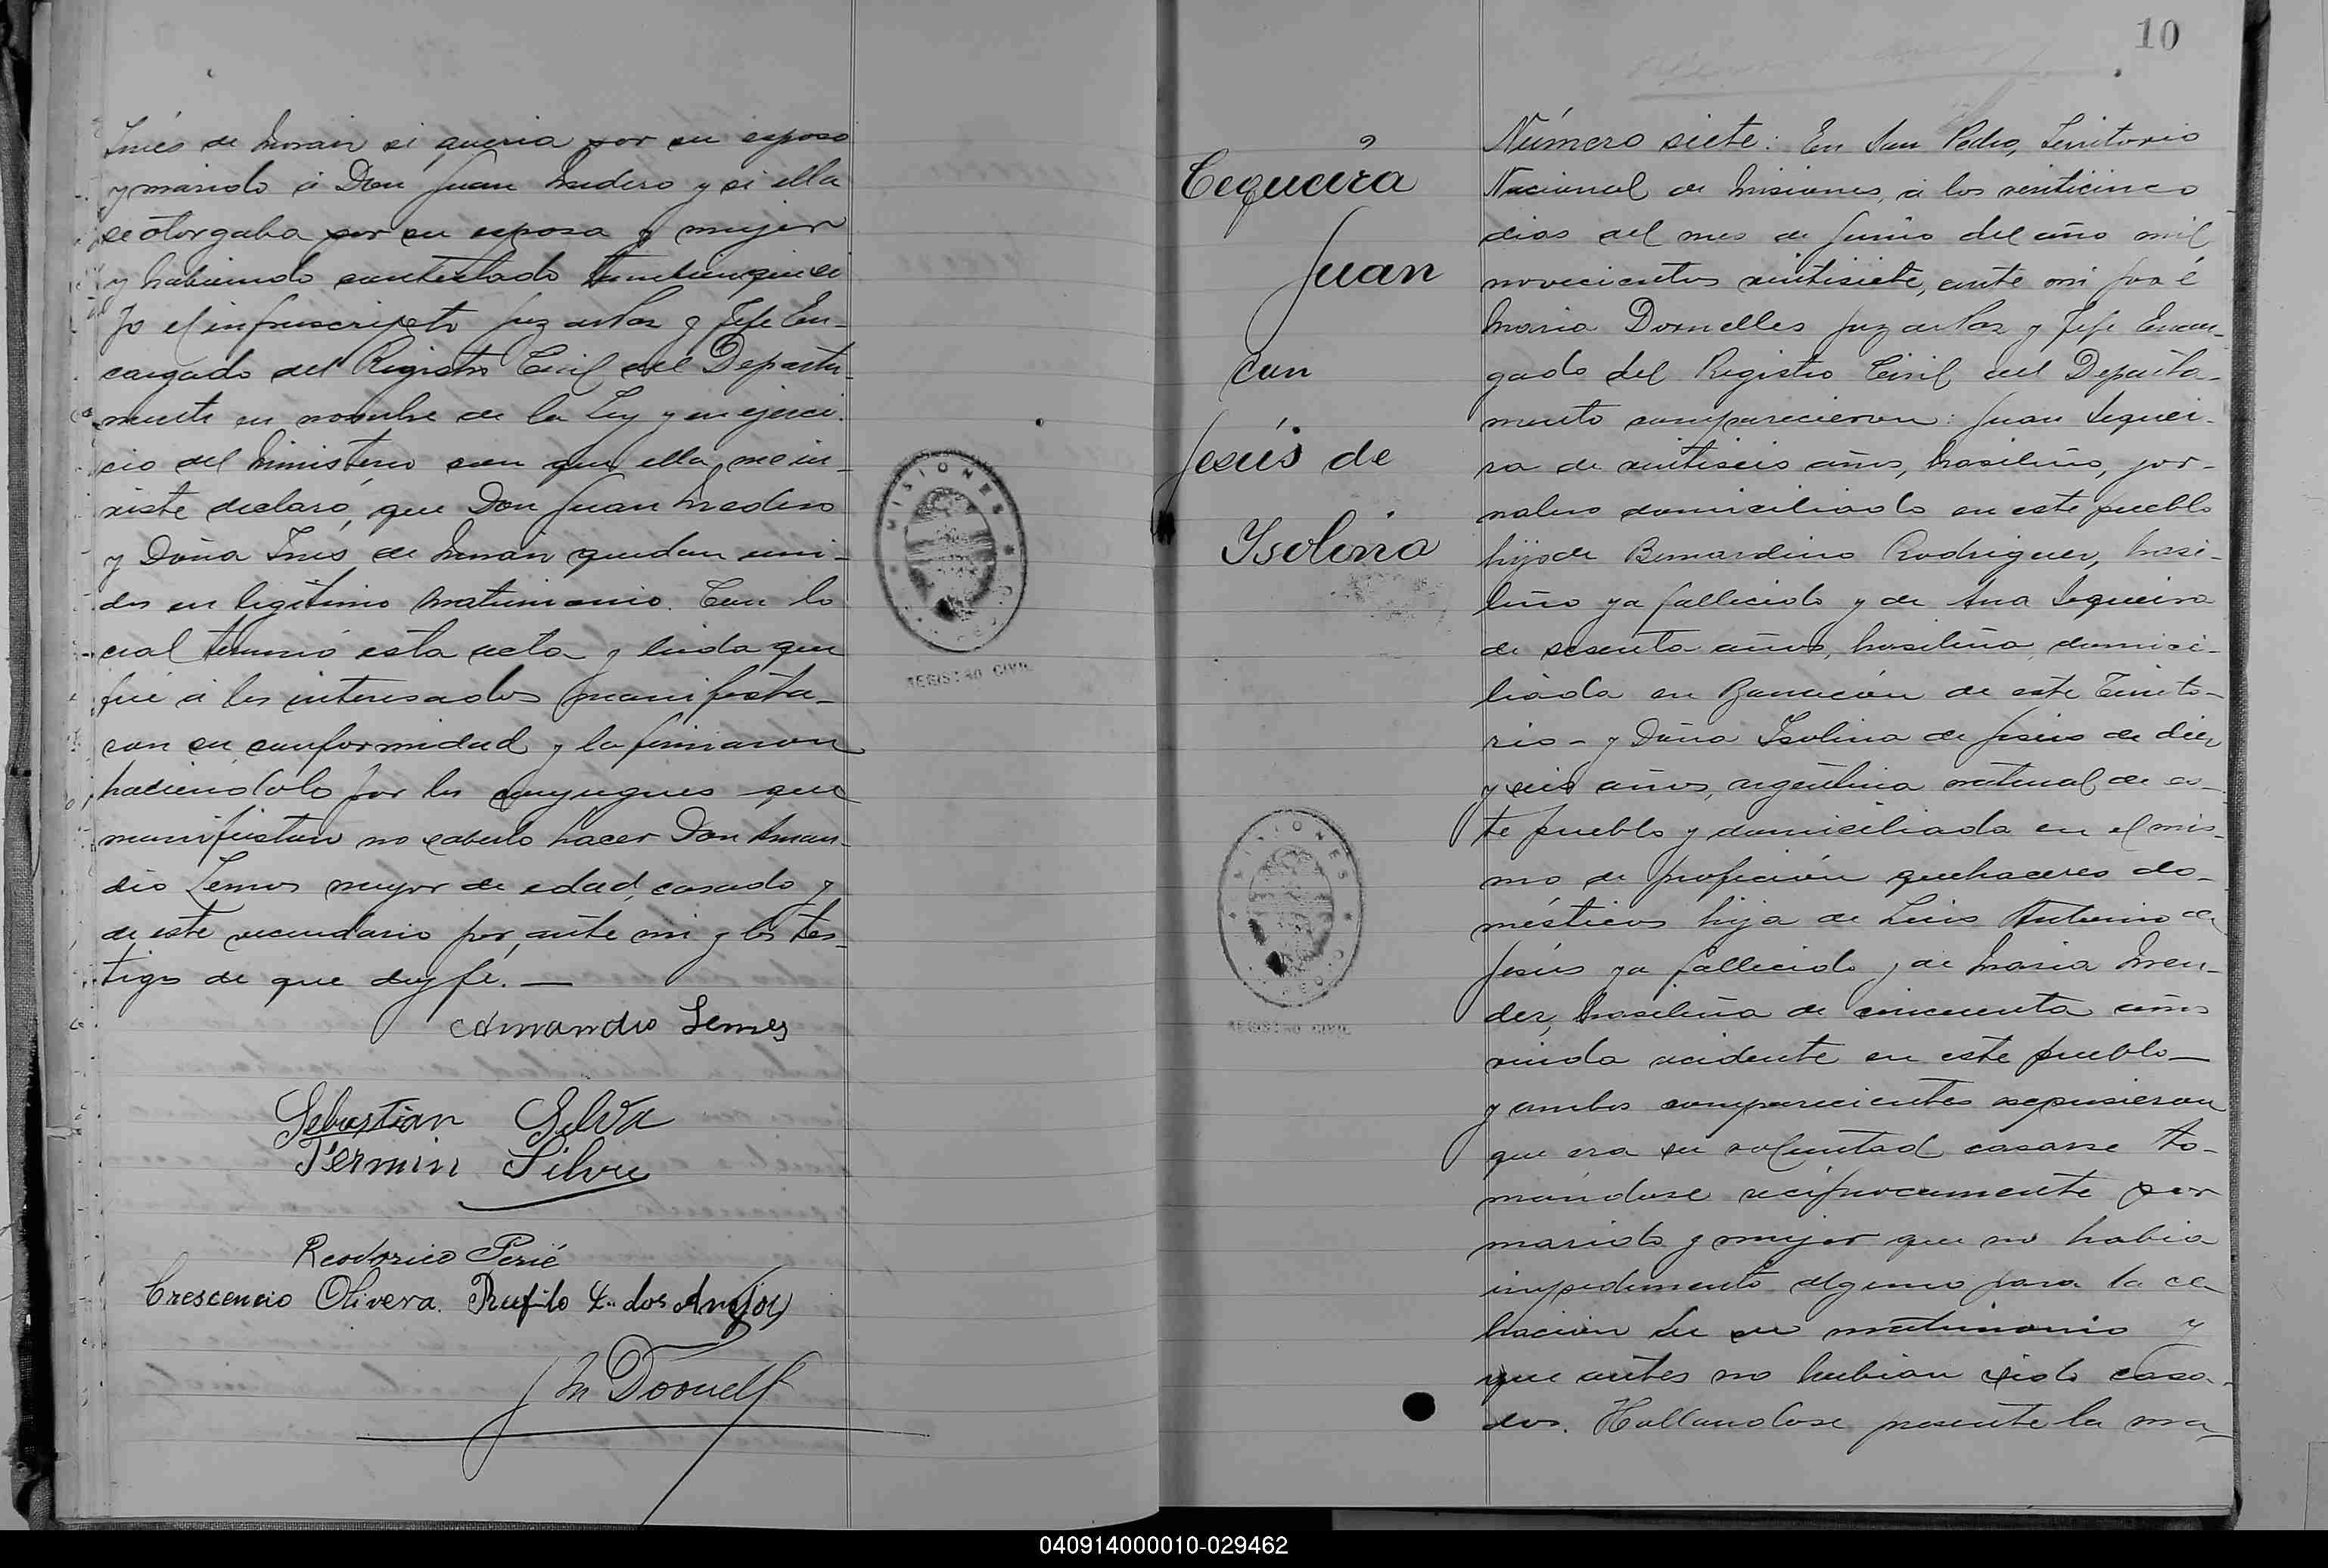 Inés de Morain si queria por su esposo
y marido á Don Juan Madero y si ella
se otorgaba por su esposa y mujer
y habiendo contestado tambien que si
Yo el infrascripto Juez de Paz y Jefe En-
cargado del Registro Civil del Departa-
mento en nombre de la Ley y en ejerci-
cio del Ministerio con que ella me in-
viste declaró, que Don Juan Madero
y Doña Inés de Morain quedan uni-
dos en legitimo matrimonio. Con lo
cual terminó esta acta y leida que
fué á los interesados manifesta-
ron su conformidad y la firmaron
haciendolo por los conyugues que
manifiestan no saberlo hacer Don Aman-
dio Lemos mayor de edad, casado y
de este vecindario por ante mi y los tes-
tigos de que doy fé. —
Amandio Lemes
Sebastian Silva
Fermin Silva
Reodorico Perié
Crescencio Olivera. Rufilo L. dos Anjos
J M Dornelles
MISIONES
REGISTRO CIVIL
10
Cequeira
Juan
con
Jesús de
Ysolina
MISIONES
REGISTRO CIVIL
Número siete: En San Pedro, Territorio
Nacional de Misiones, á los venticinco
dias del mes de Junio del año mil
novecientos vintisiete, ante mi José
Maria Dornelles Juez de Paz y Jefe Encar-
gado del Registro Civil del Departa-
mento comparecieron: Juan Sequei-
ra de vintiseis años, brasileño, jor-
nalero domiciliado en este pueblo
hijo de Bernardino Rodriguez, brasi-
leño ya fallecido y de Ana Sequeira
de sesenta años, brasileña, domici-
liada en Bonucion de este Territo-
rio - y Doña Isolina de Jesús de diez
y seis años, argentina natural de es-
te pueblo y domiciliada en el mis-
mo de profición quehaceres do-
mésticos hija de Luis Antonio de
Jesús ya fallecido y de Maria Men-
dez, brasileña de cincuenta años
viuda recidente en este pueblo —
y ambos comparecientes expusieron
que era su voluntad casarse to-
mándose reciprocamente por
marido y mujer que no habia
impedimento alguno para la ce-
bracion de su matrimonio y
que antes no habian sido casa-
dos. Hallandose presente la ma-
040914000010-029462